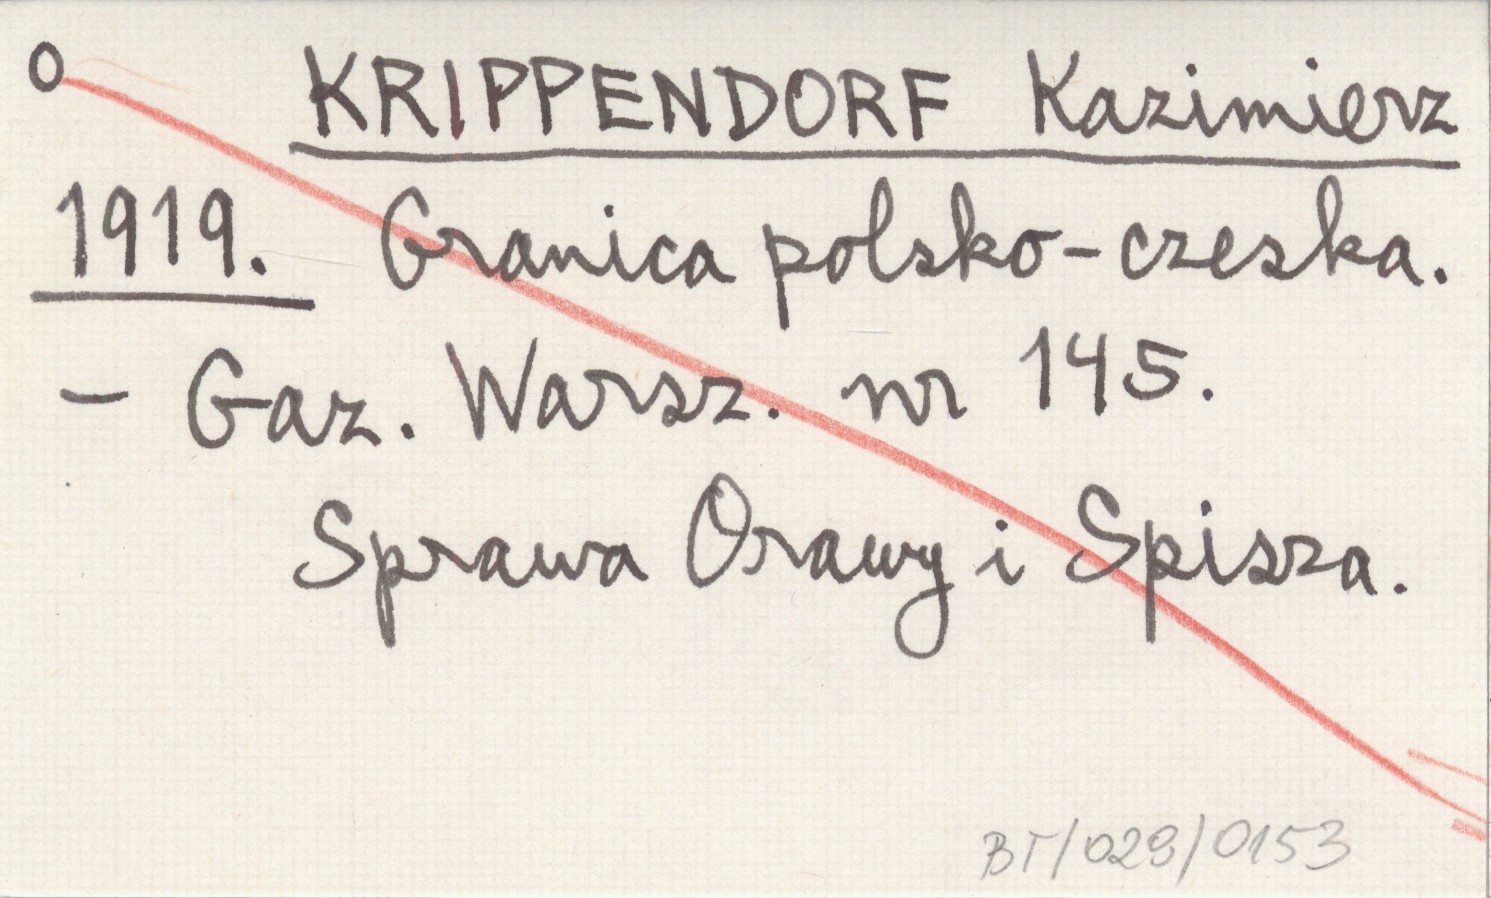 O KRIPPENDORF Kazimierz
1919. Granica polsko-czeska.
- Gaz. Warsz. nr 145.
Sprawa Orawy i Spisza.
BT/028/0153